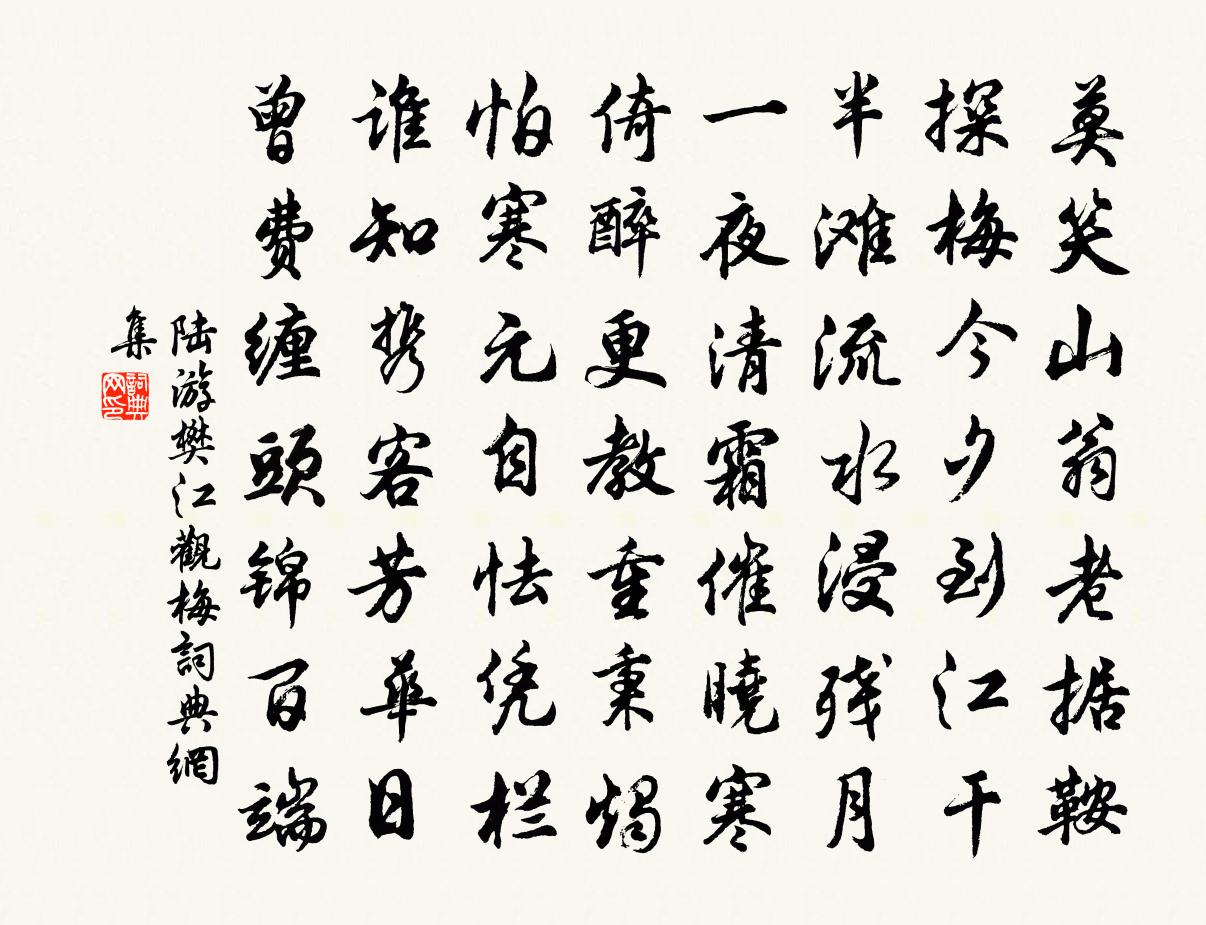 莫笑山翁老据鞍
探梅今夕到江干
半滩流水浸残月
一夜清霜催曉寒
倚醉更教重秉燭
怕寒元自怯凭栏
谁知携客芳華日
曾费缠頭锦百端
陆游樊江觀梅詞典網
集
詞典网印